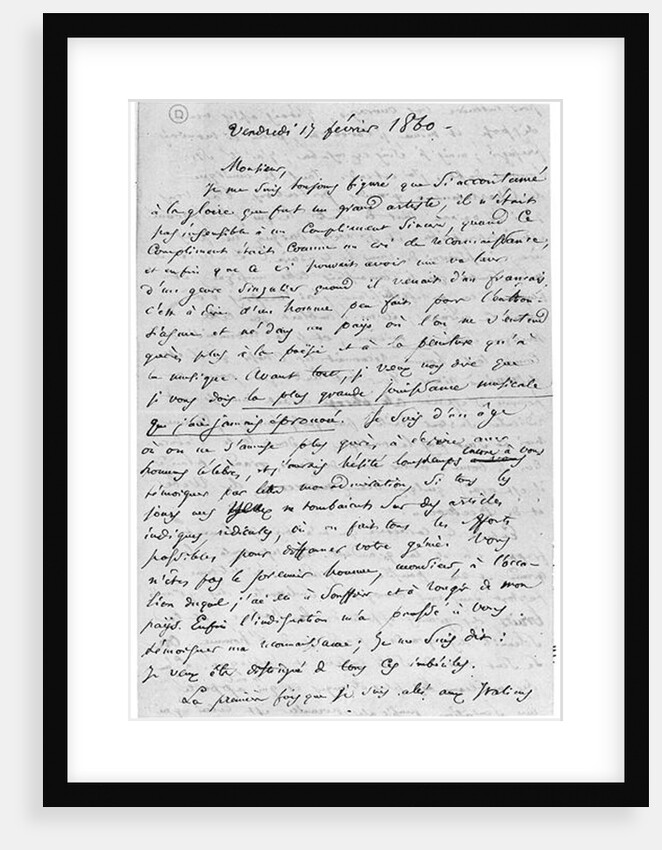 Vendredi 17 février 1860 -
Monsieur,
Je me suis toujours figuré que si accoutumé
à la gloire que fut un grand artiste, il n'était
pas insensible à un compliment sincère, quand ce
compliment était comme un cri de reconnaissance,
et enfin que ce cri pouvait avoir une valeur
d'un genre singulier quand il venait d'un français,
c'est à dire d'un homme peu fait pour l'enthou-
siasme et né dans un pays où l'on ne s'entend
guères plus à la poësie et à la peinture qu'à
la musique. Avant tout, je veux vous dire que
je vous dois la plus grande jouissance musicale
que j'aie jamais éprouvée. Je suis d'un âge
où on ne s'amuse plus guères à écrire aux
hommes célèbres, et j'aurais hésité longtemps encore à vous
témoigner par lettre mon admiration, si tous les
jours mes yeux ne tombaient sur des articles
indignes, ridicules, où on fait tous les efforts
possibles pour diffamer votre génie. Vous
n'êtes pas le premier homme, monsieur, à l'occa-
sion duquel j'ai eu à souffrir et à rougir de mon
pays. Enfin l'indignation m'a poussé à vous
témoigner ma reconnaissance; je me suis dit:
Je veux être distingué de tous ces imbéciles.
La première fois que je suis allé aux Italiens